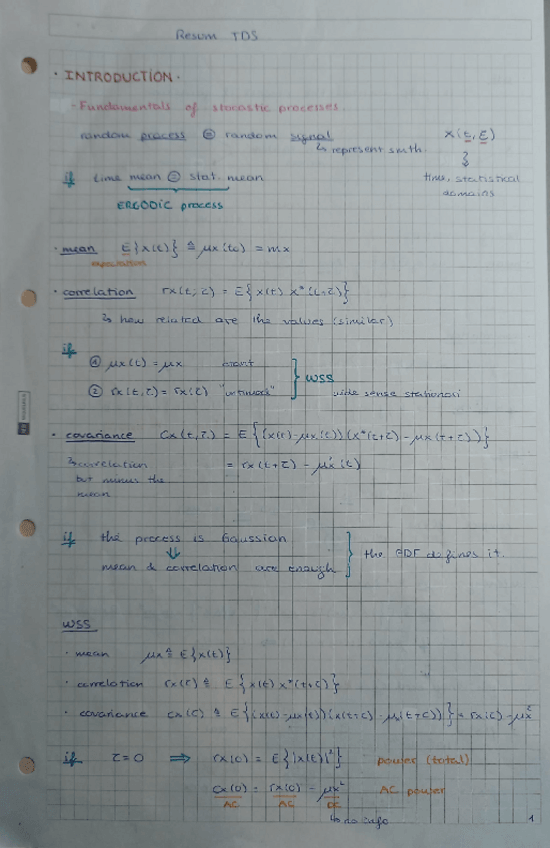 Resum TDS
· INTRODUCTION ·
- Fundamentals of stocastic processes
random process ≡ random signal
↳ represent smth.
x(t, ξ)
time, statistical domains
if time mean = stat. mean
ERGODIC process
· mean E{x(t)} ≜ μx(t) = mx
expectation
· correlation rx(t,τ) = E{x(t) x*(t+τ)}
↳ how related are the values (similar)
if
① μx(t) = μx
② rx(t,τ) = rx(τ)
WSS
wide sense stationari
· covariance Cx(t,τ) = E{(x(t)-μx(t))(x*(t+τ)-μx(t+τ))}
↳ correlation but minus the mean
= rx(t+τ) - μx²(t)
if the process is Gaussian
⇓
mean & correlation are enough
the PDF defines it.
WSS
· mean μx ≜ E{x(t)}
· correlation rx(τ) ≜ E{x(t) x*(t+τ)}
· covariance cx(τ) ≜ E{(x(t)-μx(t))(x(t+τ)-μx(t+τ))} = rx(τ) - μx²
if τ=0 ⇒ rx(0) = E{|x(t)|²} power (total)
cx(0) = rx(0) - μx² AC power
AC AC DC
↳ no info
1